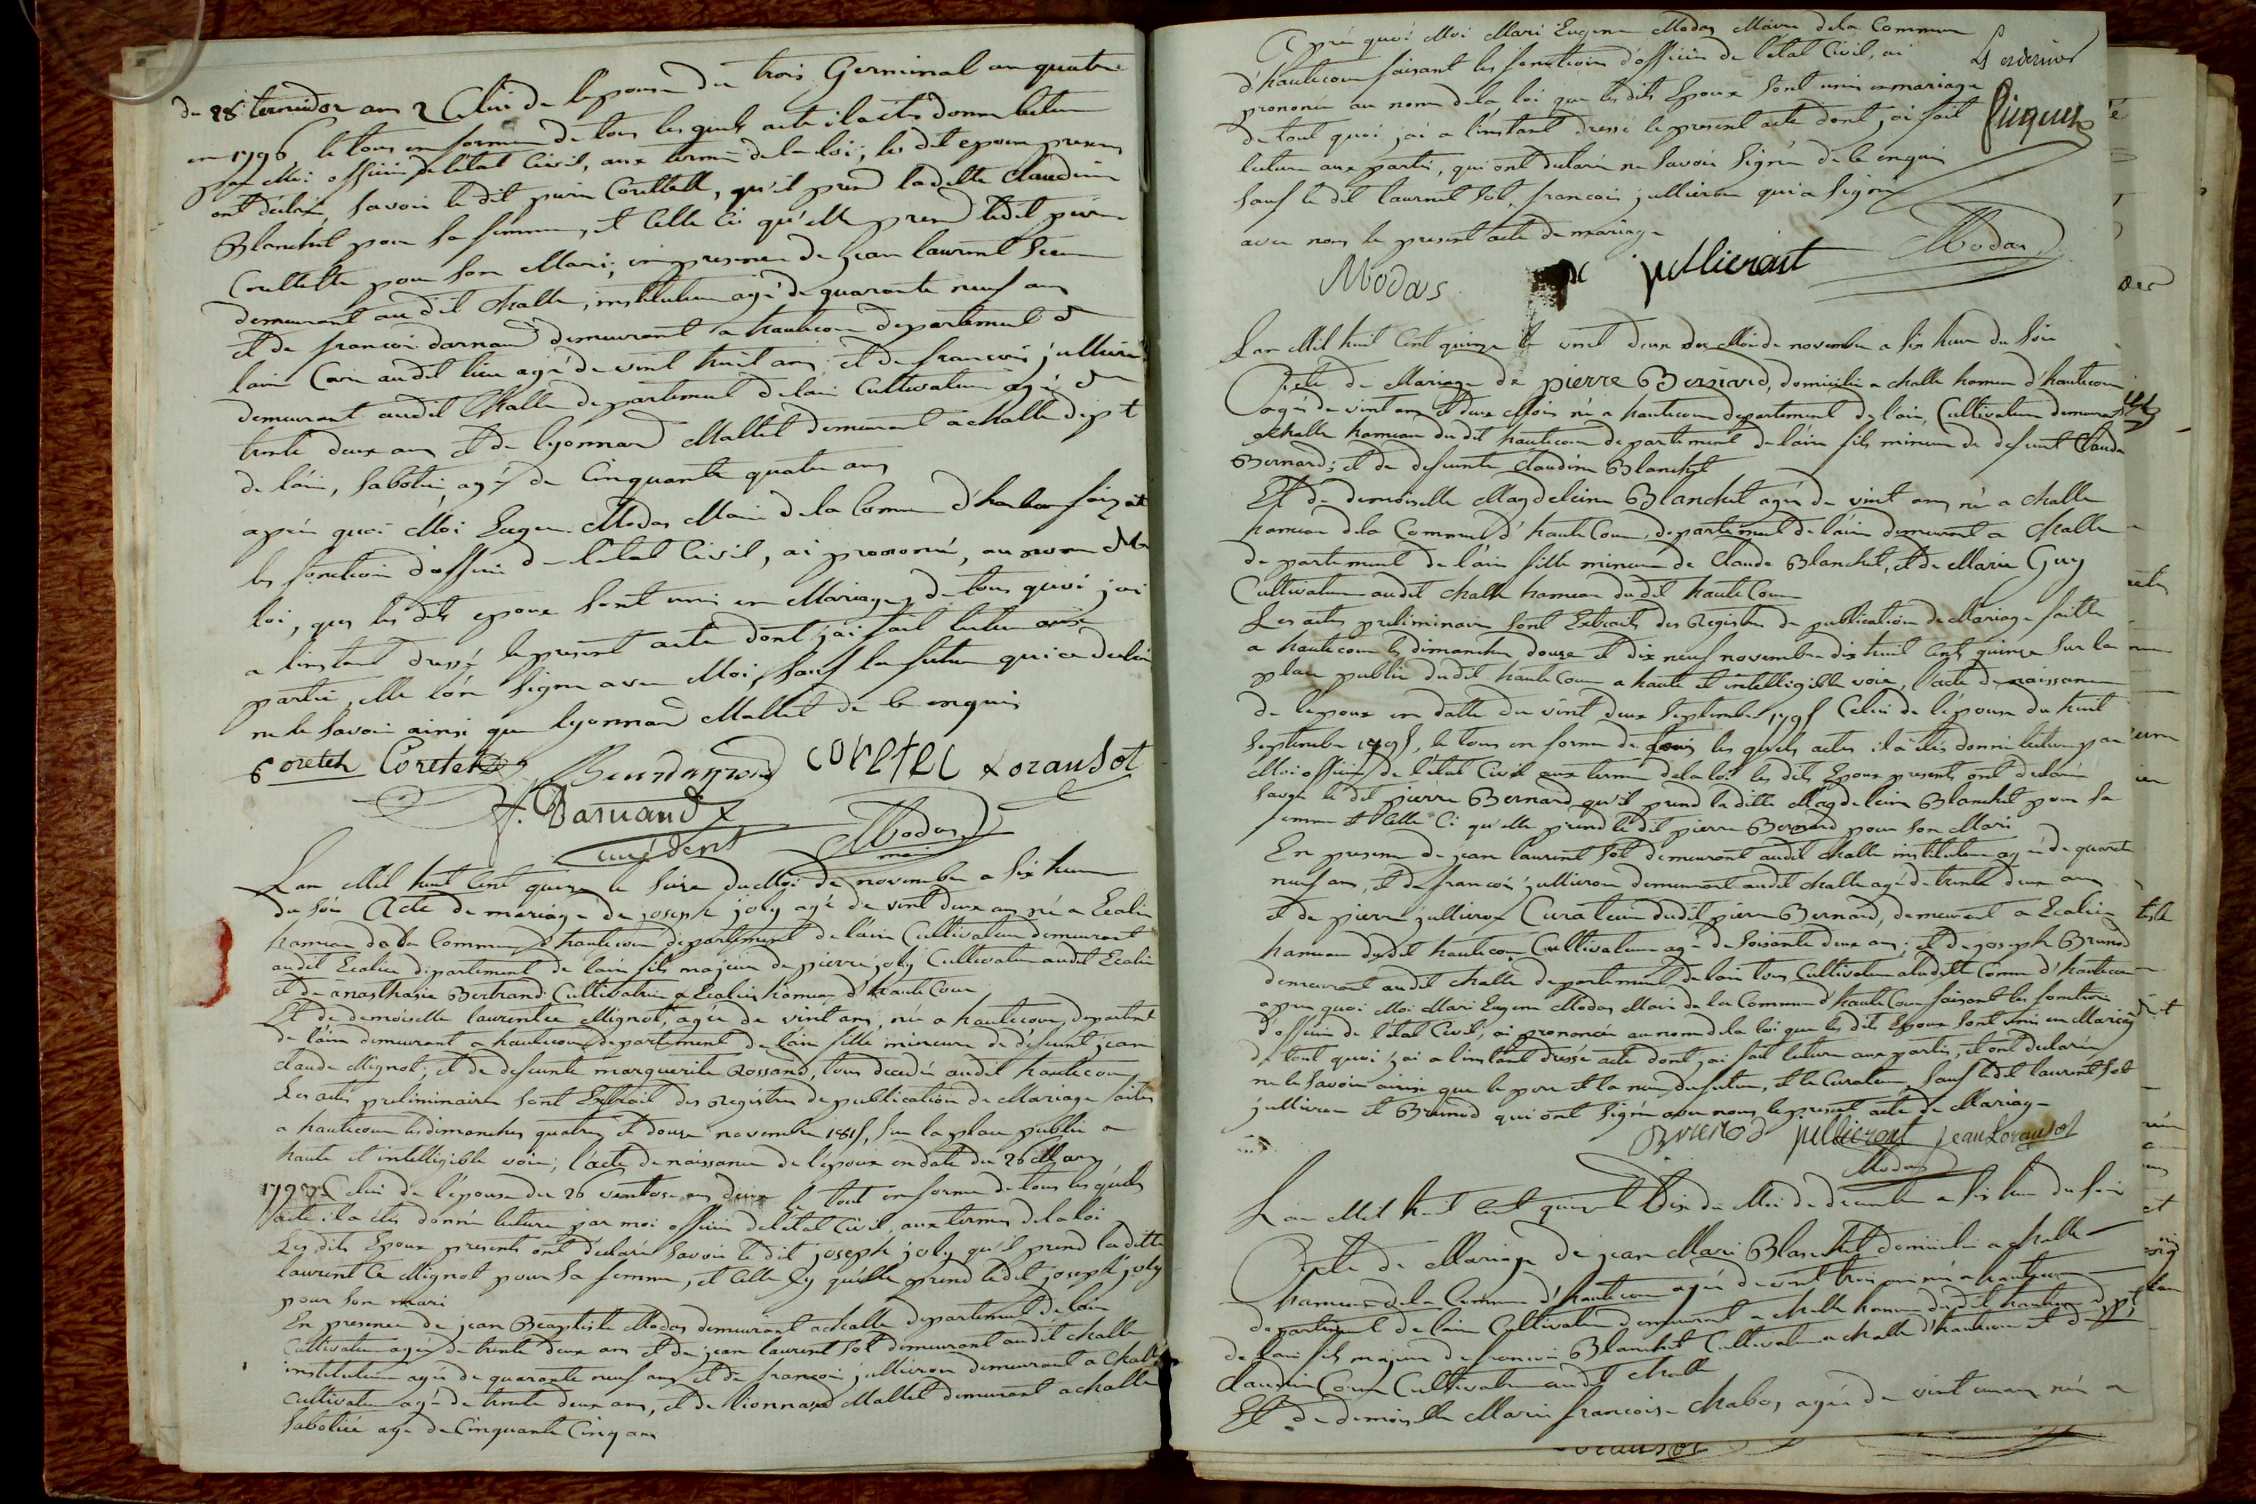 du 28 termidor an 2 Celui de lepouse du trois Germinal an quatre
en 1796 le tous en forme de tous les quels acte il a étés donné lecture
par Moi officier de letat Civil, aux termes de la loi, les dit epoux presens
ont declaré, savoir le dit pierre Corettell, qu'il prend la ditte Claudine
Blanchet pour sa femme, et Celle Ci qu'elle prend ledit pierre
Corettette pour son Mari; en presence de jean laurent
demeurant au dit Challe, instituteur agé de quarante neuf ans
et de francois darnaud demeurant a hautecour departement de
lain Curé audit lieu agé de vint huit ans, et de francois jullieron
demeurant audit Challe departement de lain Cultivateur agé de
trente deux ans et de lyonnard Mallet demeurant a challe dept
de lain, sabotier, agé de Cinquante quatre ans
après quoi Moi Eugene Modas Maire de la Commune d'hautecour faisant
les fonctions d'officier de letat Civil, ai prononcé, au nom de la
loi, que les dits epoux sont unis en Mariage, de tous quoi jai
a linstant dressé le present acte dont jai fait lecture aux
parties, elle lon signé avec Moi, sauf la future qui a declaré
ne le savoir ainsi que lyonnard Mallet de ce enquis
Coretek Coretek coretel Loransot
f. Darnaud
curé dent Modas
maire
Lan Mil huit Cent quinze le seize du Moi de novembre a six heure
du soir Acte de mariage de joseph joly agé de vint deux an né a Ecalin
hameau de la Commune d'hautecour departement de lain Cultivateur demeurant
audit Ecalin departement de lain fils majeur de pierre joly Cultivateur audit Ecalin
et de anasthasie Bertrand Cultivatrice a Ecalin hameau d'haute Cour
Et de demoiselle laurentce Mignot, agée de vint ans, née a hautecour, departement
de l'ain demeurant a hautecour departement de lain fille mineure de défeunt jean
claude Mignot; et de defeunte marguerite Rossand, tous decedé audit hautecour
Les actes preliminaires sont Extrait des Registres de publication de Mariage faites
a hautecour les dimanches quatre et douze novembre 1815, sur la place public a
haute et intelligible voix; l'acte de naissance de l'époux en date du 26 Mars
1793 Celui de l'épouse du 26 ventose an deux le tout en forme de tous les quels
acte il a étés donné lecture par moi officier de letat Civil, aux termes de la loi
Les dits Epoux presents ont déclaré savoir le dit joseph joly qu'il prend la ditte
laurent Ce Mignot pour sa femme, et Celle Cy qu'elle prend le dit joseph joly
pour son mari
En presence de jean Beaptiste Modas demeurant a challe departement de lain
Cultivateur agé de trente deux ans et de jean laurent Sot demeurant audit challe
instituteur agé de quarante neuf ans et de françois jullieron demeurant a Challe
cultivateur agé de trente deux ans, et de lionnard Mallet demeurant a challe
sabotier agé de Cinquante Cinq ans
Après quoi Moi Mari Eugene Modas Maire dela Commune
d'hautecour faisant les fonctions d'officier de l'état Civil, ai
prononcé au nom dela loi que les dits Epoux sont unis en mariage
de tout quoi jai a l'instant dressé le present acte dont jai fait
lecture aux partis, qui ont declaré ne savoir signer de ce enquis
sauf le dit laurent Sot, francois jullieron qui a signé
avec nous le present acte de mariage
Modas jullieront Modas
Lan Mil huit Cent quinze le vint deux du Moi de novembre a six heure du soir
Acte de Mariage de pierre Bernard, domicilié a challe hameau d'hautecour
agé de vint ans et deux Mois né a hautecour departement de l'ain, Cultivateur demeurant
a challe hameau du dit hautecour departement de lain fils mineur de defeunt Claude
Bernard; et de defeunte Claudine Blanchet
Et de demoiselle Magdeleine Blanchet agée de vint ans né a challe
hameau dela Commune d'haute Cour, departement de lain demeurant a challe
departement de l'ain fille mineure de Claude Blanchet, et de Marie Guy
Cultivateur audit challe hameau du dit haute Cour
Les actes preliminaire sont Extraits des Registres de publication de Mariage faitte
a hautecour les dimanches douze et dix neuf novembre dix huit Cents quinze sur la
place public dudit haute Cour a haute et intelligible voix, l'acte de naissance
de l'époux en datte du vint deux septembre 1795 Celui de l'épouse du huit
septembre 1795, le tous en forme de tous les quels actes il a étés donné lecture par
Moi officier de l'état Civil aux termes dela loi les dits Epoux presents ont declaré
savoir le dit pierre Bernard qu'il prend la ditte Magdeleine Blanchet pour sa
femme et Celle Ci qu'elle prend le dit pierre Bernard pour son Mari
En presence de jean laurent Sot demeurant audit challe instituteur agé de quarante
neuf ans, et de francois jullieron demeurant audit challe agé de trente deux ans
et de pierre jullieron Curateur dudit pierre Bernard, demeurant a Ecalin
hameau dudit hautecour Cultivateur agé de soixante deux ans; et de joseph Brunod
demeurant audit challe departement de lain tous Cultivateur aladitte Comune d'hautecour
apres quoi Moi Mari Eugene Modas Maire de la Commune d'haute Cour faisant les fonctions
d'officier de l'état Civil, ai prononcée au nom dela loi que les dits Epoux sont unis en Mariage
de tout quoi jai a l'instant dressé acte dont jai fait lecture aux partis, et ont declaré
ne le savoir ainsi que le pere et la mere du futur, et le Curateur, sauf ledit laurent Sot
jullieron et Brunod qui ont signé avec nous le present acte de Mariage
Brunod jullieront jean Loransot
Modas
Lan Mil huit Cent quinze le dix du Moi de decembre a six heure du soir
Acte de Mariage de jean Mari Blanchet domicilié a challe
hameau dela Commune d'hautecour agée de vint trois ans né a hautecour
departement de lain Cultivateur demeurant a challe hameau dudit hautecour dept
de lain fils majeur de francois Blanchet Cultivateur a challe d'hautecour et de
claudine Cultivateur audit challe
Et de demoiselle Marie francoise Chabos, agée de vint un ans née a